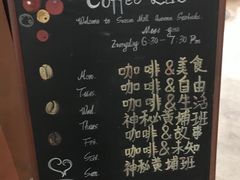 Coffee
Welcome to Season Mall Starbucks
Everyday 6:30 - 7:30 Pm
Mon. 咖啡&美食
Tues. 咖啡&自由
Wed. 咖啡&生活
Thurs. 神秘黄埔班
Fri. 咖啡&故事
Sat. 咖啡&未知
Sun. 神秘黄埔班